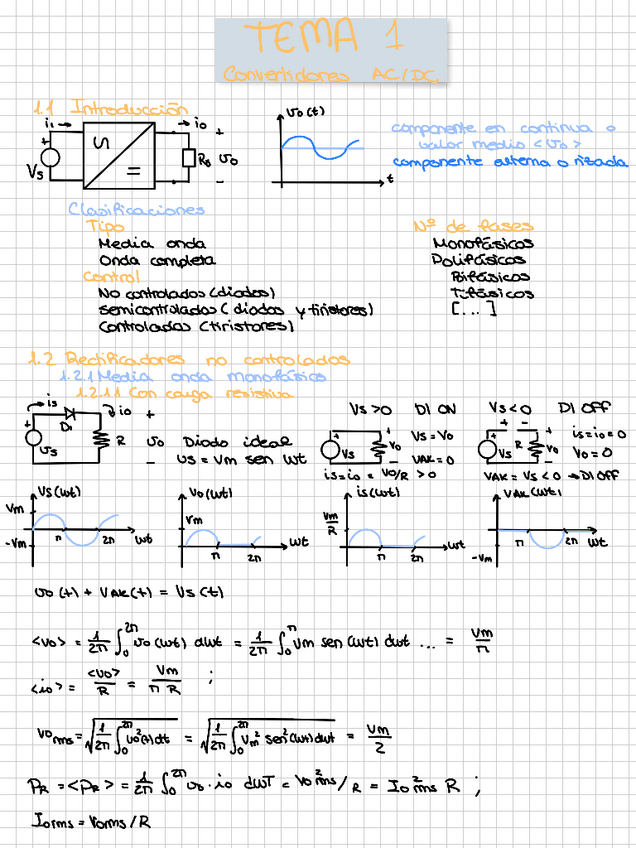 TEMA 1
Convertidores AC/DC
1.1 Introducción
i₁ → → io
+ +
Vs Ro vo
- -
vo(t)
t
componente en continua o
valor medio <vo>
componente alterna o rizada
Clasificaciones
Tipo
Media onda
Onda completa
Control
No controlados (diodos)
semicontrolados (diodos y tiristores)
Controlados (tiristores)
Nº de fases
Monofásicos
Polifásicos
Bifásicos
Tifásicos
[...]
1.2 Rectificadores no controlados
1.2.1 Media onda monofásico
1.2.1.1 Con carga resistiva
is → D1 io +
+ vs R vo
-
Diodo ideal
vs = Vm sen wt
Vs>0 D1 ON
+ Vs + Vo
Vs = Vo
VAK = 0
is = io = Vo/R > 0
Vs<0 D1 OFF
+ - + Vs R Vo
is = io = 0
Vo = 0
VAK = Vs < 0 → D1 OFF
Vs(wt)
Vm
-Vm
π 2π wt
Vo(wt)
Vm
π 2π wt
is(wt)
Vm/R
π 2π wt
VAK(wt)
-Vm
π 2π wt
vo(t) + VAK(t) = Vs(t)
<vo> = 1/2π ∫₀^2π vo(wt) dwt = 1/2π ∫₀^π Vm sen(wt) dwt ... = Vm/π
<io> = <vo>/R = Vm/π R ;
Vo rms = √(1/2π ∫₀^2π vo²(t)dt) = √(1/2π ∫₀^2π Vm² sen²(wt)dwt) = Vm/2
PR = <PR> = 1/2π ∫₀^2π vo · io dwT = Vo²rms/R = Io²rms R ;
Iorms = Vorms/R